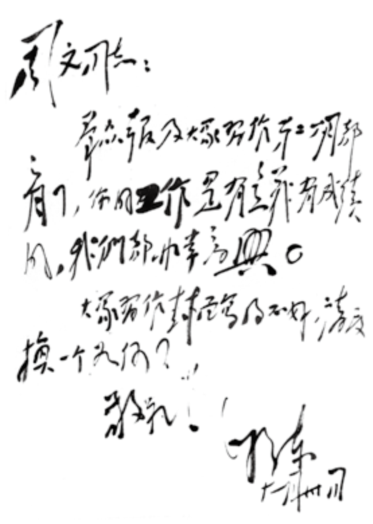 周文同志：
群众报及大众习作第二期都
看了，你的工作是有意义有成绩
的，我们都非常高兴。
大众习作封面写的不好，请更
换一个如何？
敬礼！
毛泽东
十一月卅一日